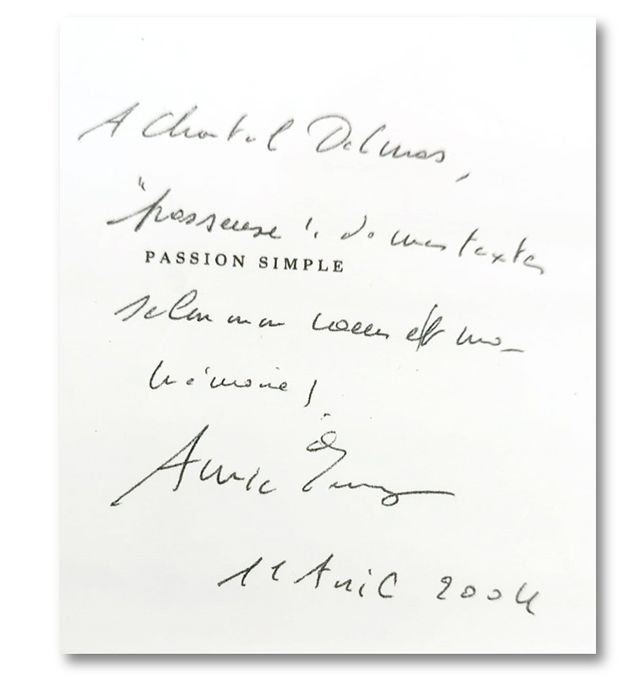 A Chantal Delmas,
"passeuse" de mes textes
PASSION SIMPLE
selon mon et ma
mémoire!
Annie Ernaux
11 Avril 2004